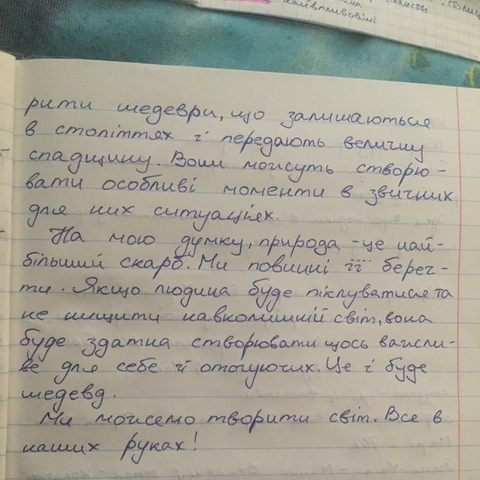 найвпливовіші
рити шедеври, що залишаються
в століттях й передають величну
спадщину. Вони можуть створю-
вати особливі моменти в звичних
для них ситуаціях.
На мою думку, природа - це най-
більший скарб. Ми повинні її берег-
ти. Якщо людина буде піклуватися та
не нищити навколишній світ, вона
буде здатна створювати щось важли-
ве для себе й оточуючих. Це і буде
шедевд.
Ми можемо творити світ. Все в
наших руках!